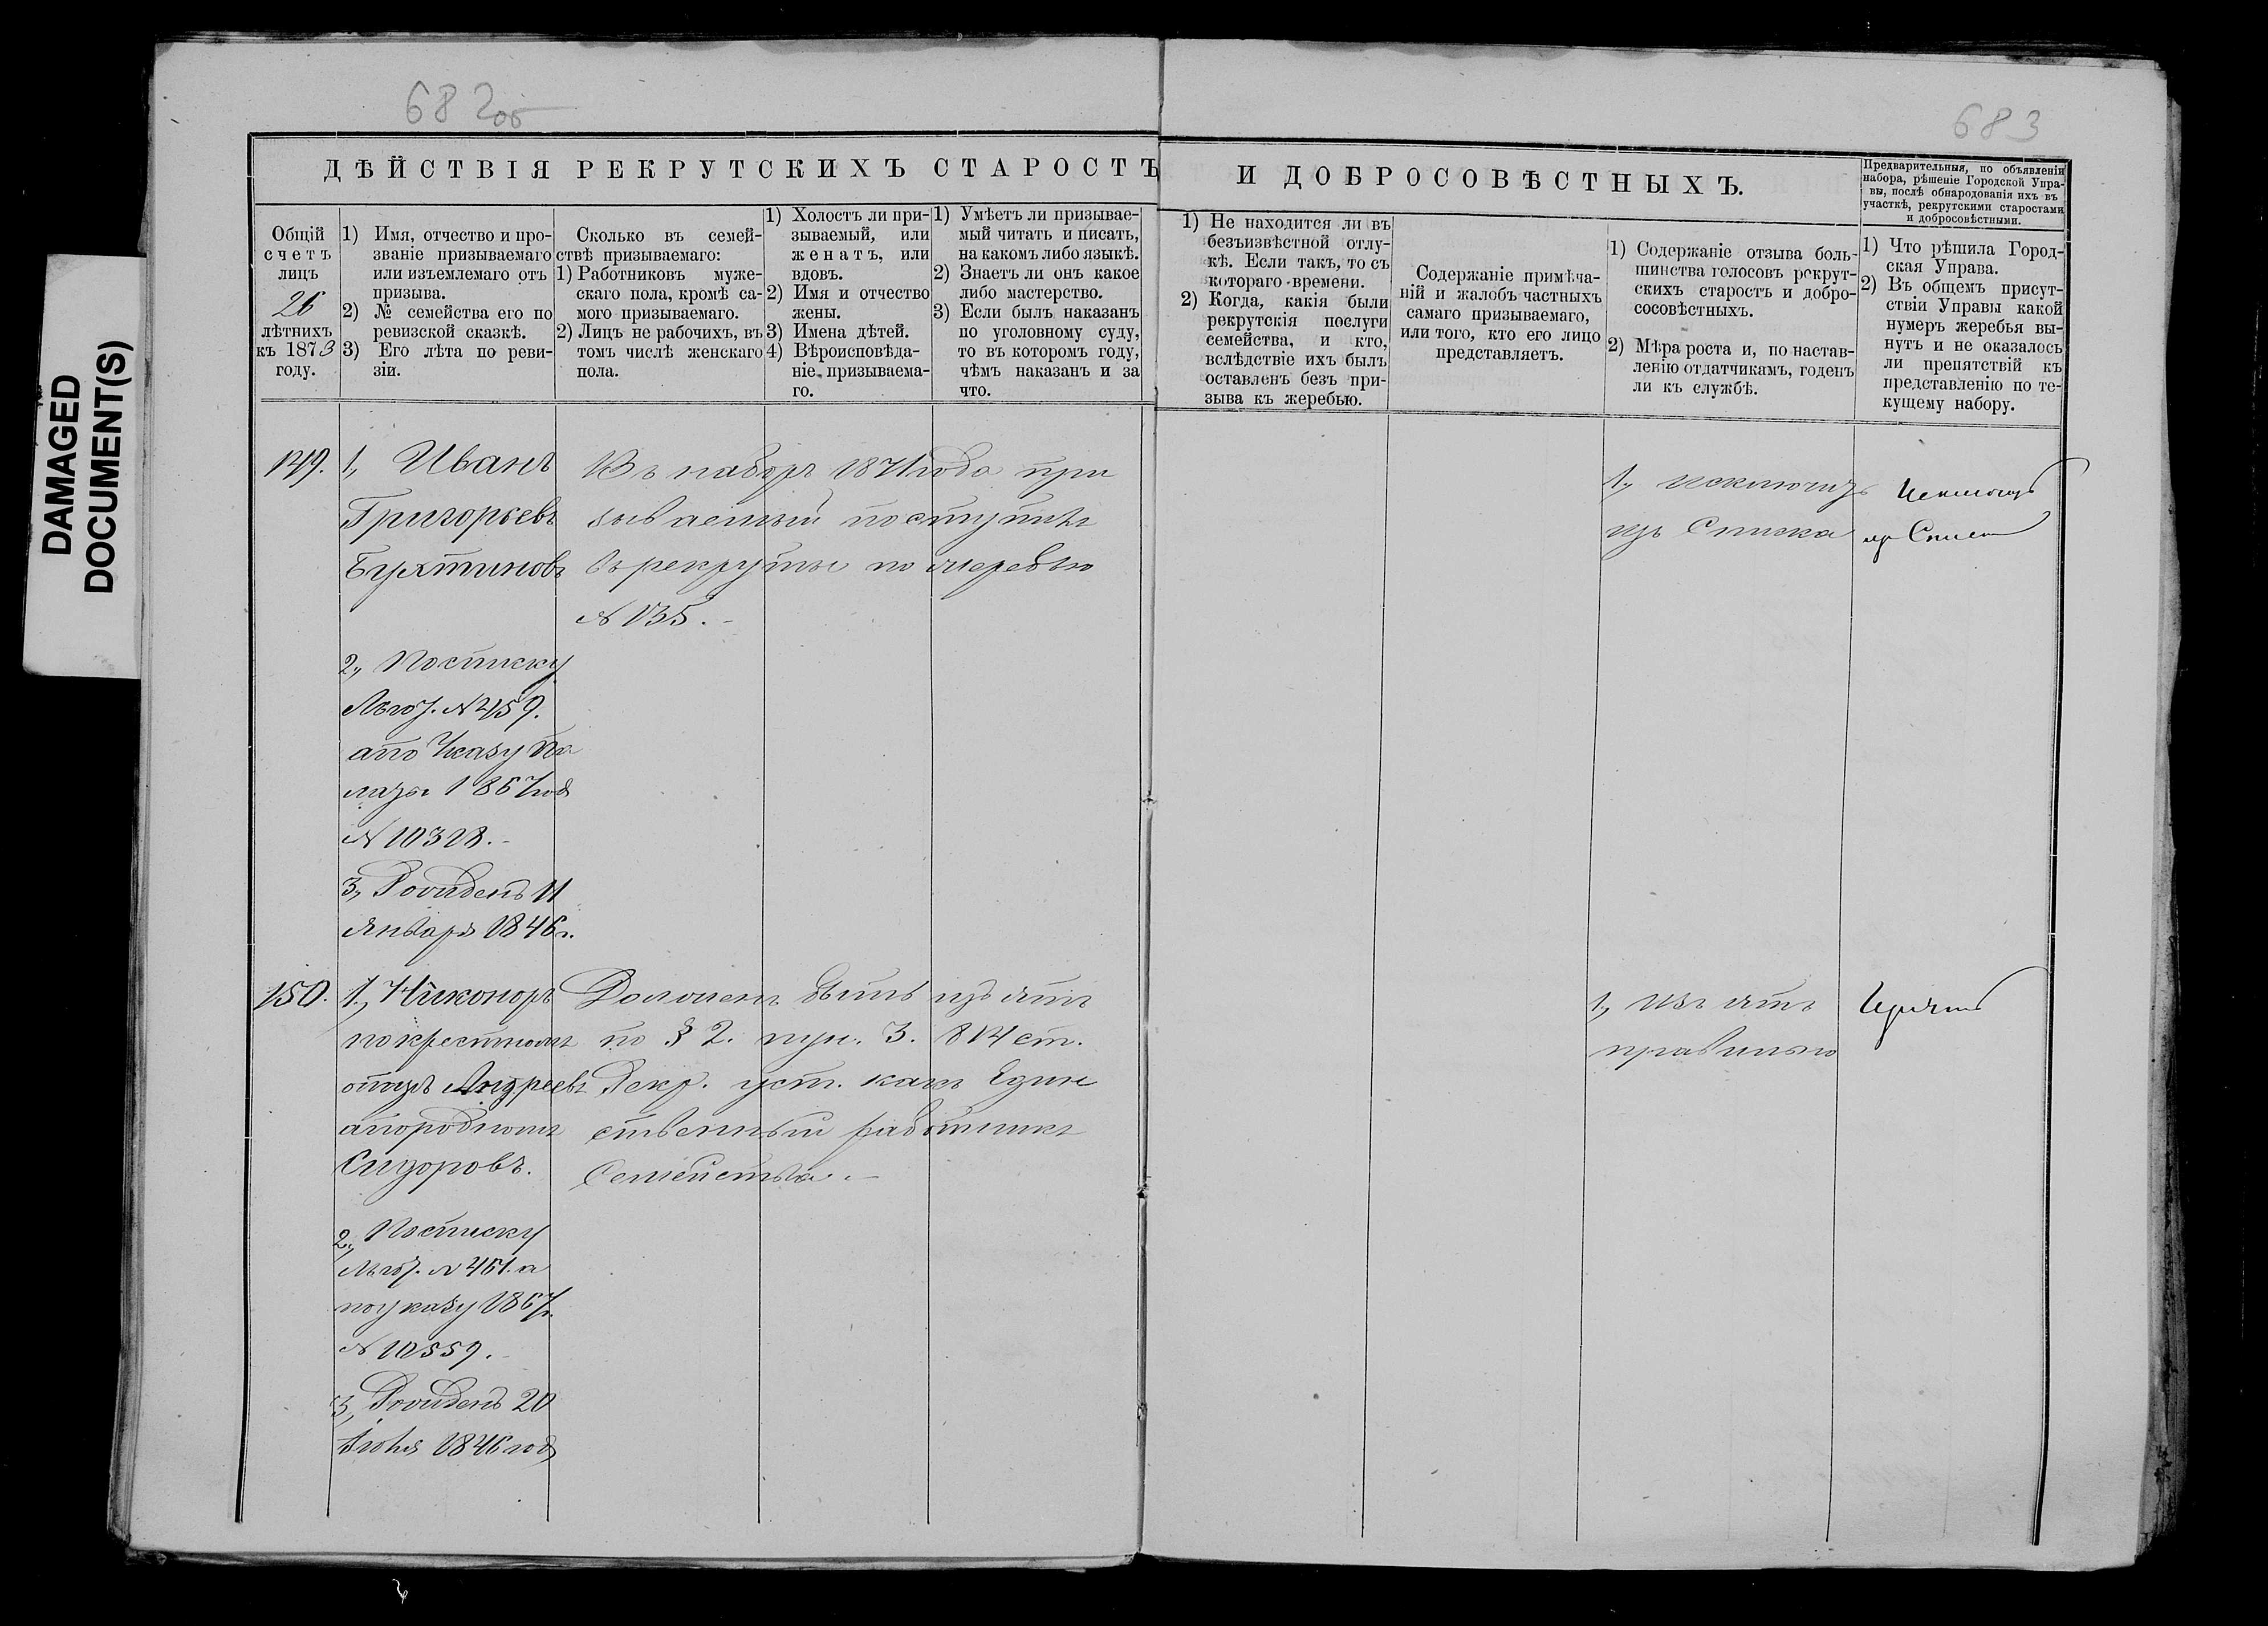 DAMAGED
DOCUMENT(S)
682об
683
ДѢЙСТВІЯ РЕКРУТСКИХЪ СТАРОСТЪ
И ДОБРОСОВѢСТНЫХЪ.
Предварительныя, по объявленіи
набора, рѣшеніе Городской Упра-
вы, послѣ обнародованія ихъ въ
участкѣ, рекрутскими старостами
и добросовѣстными.
Общій
счетъ
лицъ
26
лѣтнихъ
къ 1873
году.
1) Имя, отчество и про-
званіе призываемаго
или изъемлемаго отъ
призыва.
2) № семейства его по
ревизской сказкѣ.
3) Его лѣта по реви-
зіи.
Сколько въ семей-
ствѣ призываемаго:
1) Работниковъ муже-
скаго пола, кромѣ са-
мого призываемаго.
2) Лицъ не рабочихъ, въ
томъ числѣ женскаго
пола.
1) Холостъ ли при-
зываемый, или
женатъ, или
вдовъ.
2) Имя и отчество
жены.
3) Имена дѣтей.
4) Вѣроисповѣда-
ніе призываема-
го.
1) Умѣетъ ли призывае-
мый читать и писать,
на какомъ либо языкѣ.
2) Знаетъ ли онъ какое
либо мастерство.
3) Если былъ наказанъ
по уголовному суду,
то въ которомъ году,
чѣмъ наказанъ и за
что.
1) Не находится ли въ
безъизвѣстной отлу-
кѣ. Если такъ, то съ
котораго времени.
2) Когда, какія были
рекрутскія послуги
семейства, и кто,
вслѣдствіе ихъ былъ
оставленъ безъ при-
зыва къ жеребью.
Содержаніе примѣча-
ній и жалобъ частныхъ
самаго призываемаго,
или того, кто его лицо
представляетъ.
1) Содержаніе отзыва боль-
шинства голосовъ рекрут-
скихъ старостъ и добро-
сосовѣстныхъ.
2) Мѣра роста и, по настав-
ленію отдатчикамъ, годенъ
ли къ службѣ.
1) Что рѣшила Город-
ская Управа.
2) Въ общемъ присут-
ствіи Управы какой
нумеръ жеребья вы-
нутъ и не оказалось
ли препятствій къ
представленію по те-
кущему набору.
149.
1, Иванъ
Григорьевъ
Бухтиновъ
2, По списку
Льгот. № 459.
а по Указу Па
латы 1867 год
№ 10318.-
3, Рожденъ 11
Января 1846 г.
Въ наборъ 1871 года при
зываемый поступилъ
въ рекруты по жеребью
№ 135.-
1, исключить
изъ Списка
Исключить
из Списка
150.
1, Никоноръ
по крестному
отцу Андреевъ
а по родному
Сидоровъ.
2, По списку
Льгот. № 461. а
по указу 1867 г.
№ 10559.
3, Рожденъ 20
Іюня 1846 год
Долженъ быть изъятъ
по § 2. пун. 3. 814 ст.
Рекр. уст. какъ Един
ственный работникъ
Семейства.-
1, Изъятъ
правильно
Изъятъ